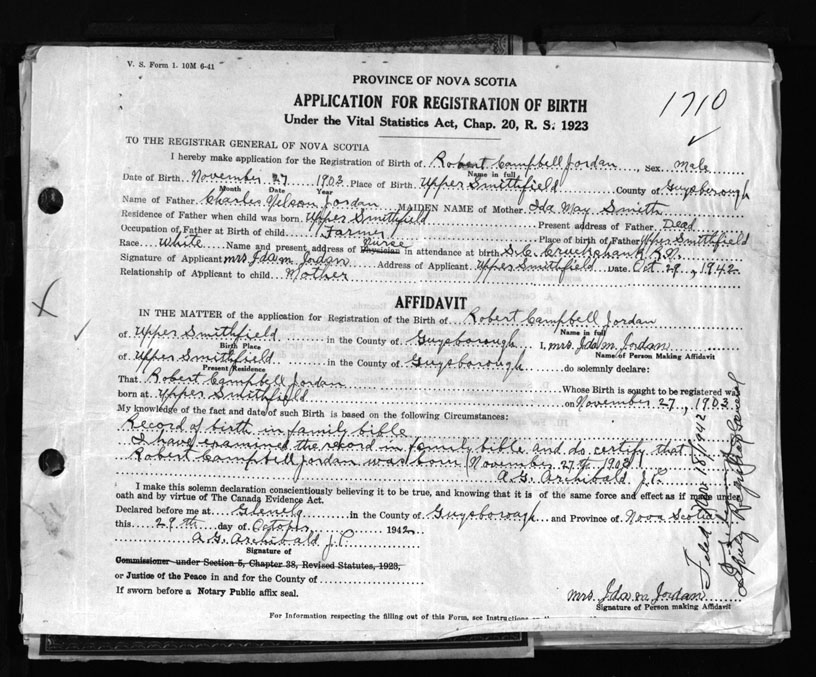 V. S. Form 1. 10M 6-41
PROVINCE OF NOVA SCOTIA
1710
APPLICATION FOR REGISTRATION OF BIRTH
Under the Vital Statistics Act, Chap. 20, R. S. 1923
TO THE REGISTRAR GENERAL OF NOVA SCOTIA
I hereby make application for the Registration of Birth of Robert Campbell Jordan, Sex male
Name in full
Date of Birth November 27 1903 Place of Birth Upper Smithfield County of Guysborough
Month Date Year
Name of Father Charles Nelson Jordan MAIDEN NAME of Mother Ida May Smith
Residence of Father when child was born Upper Smithfield Present address of Father Dead
Occupation of Father at Birth of child Farmer Place of birth of Father Upper Smithfield
Race White Name and present address of Physician Nurse in attendance at birth
Signature of Applicant mrs Ida m. Jordan Address of Applicant Upper Smithfield Date Oct. 29, 1942
Relationship of Applicant to child Mother
AFFIDAVIT
IN THE MATTER of the application for Registration of the Birth of Robert Campbell Jordan
Name in full
of Upper Smithfield in the County of Guysborough I, mrs. Ida m. Jordan
Birth Place Name of Person Making Affidavit
of Upper Smithfield in the County of Guysborough do solemnly declare:
Present Residence
That Robert Campbell Jordan Whose Birth is sought to be registered was
born at Upper Smithfield on November 27, 1903
My knowledge of the fact and date of such Birth is based on the following Circumstances:
Record of birth in family bible
I have examined the record in family bible and do certify that
Robert Campbell Jordan was born November 27th 1903
A. G. Archibald J.P.
I make this solemn declaration conscientiously believing it to be true, and knowing that it is of the same force and effect as if made under
oath and by virtue of The Canada Evidence Act.
Declared before me at Glenelg in the County of Guysborough and Province of Nova Scotia
this 29th day of October 1942
A. G. Archibald J.P.
Signature of
Commissioner under Section 5, Chapter 38, Revised Statutes, 1923,
or Justice of the Peace in and for the County of
If sworn before a Notary Public affix seal.
mrs. Ida m Jordan
Signature of Person making Affidavit
For Information respecting the filling out of this Form, see
Filed Nov 18/1942
Deputy Registrar General